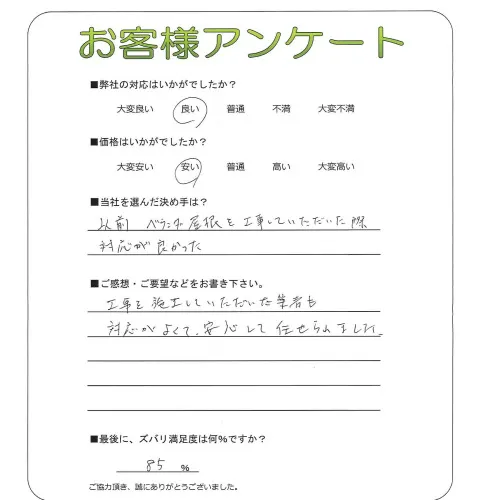 お客様アンケート
■弊社の対応はいかがでしたか？
大変良い 良い 普通 不満 大変不満
■価格はいかがでしたか？
大変安い 安い 普通 高い 大変高い
■当社を選んだ決め手は？
以前 ベランダ屋根を工事していただいた際
対応が良かった
■ご感想・ご要望などをお書き下さい。
工事を施工していただいた業者も
対応がよくて、安心して任せられました。
■最後に、ズバリ満足度は何%ですか？
85 %
ご協力頂き、誠にありがとうございました。